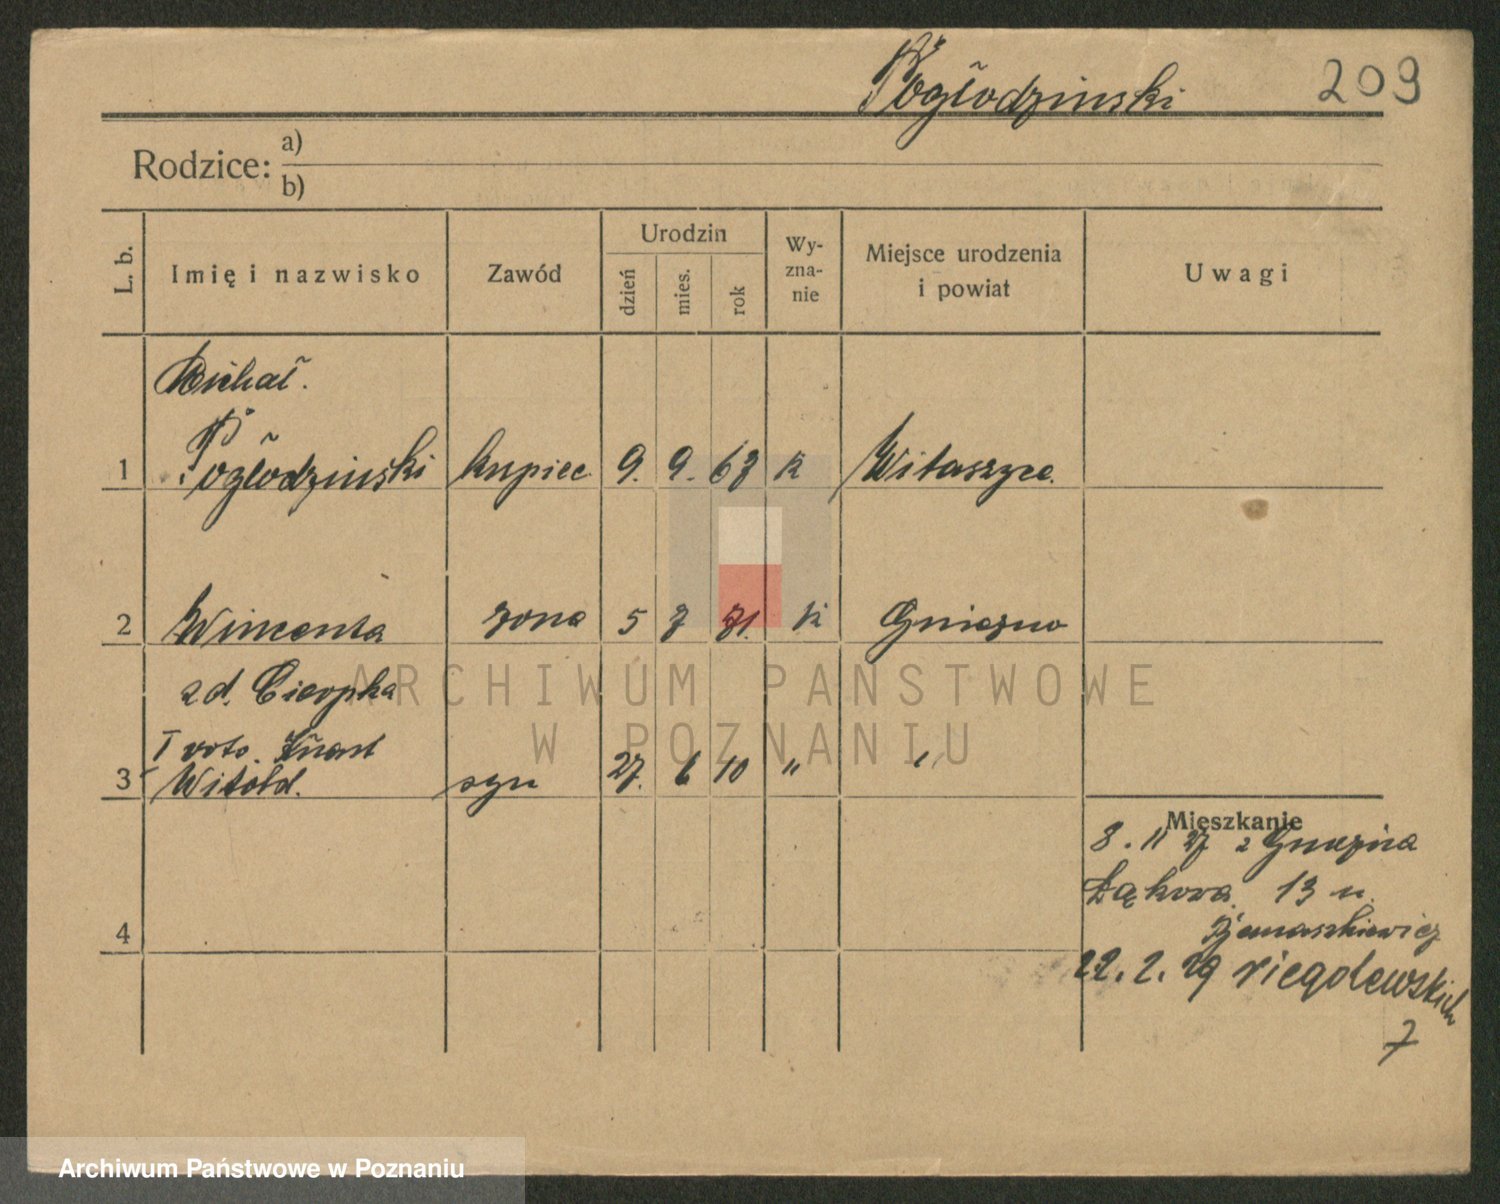 Pogłodzinski 209
Rodzice: a)
b)
L. b. Imię i nazwisko Zawód Urodzin dzień mies. rok Wy-zna-nie Miejsce urodzenia i powiat Uwagi
Michał.
1 Pogłodziński kupiec 9. 9. 67 k Witaszyce.
2 Wincenta żona 5 7 71. k Gniezno
zd. Cierpka
I voto
3 Witold. syn 27. 6 10 " "
Mieszkanie
8. 11 27 z Gniezna
Łąkowa 13 u.
4
22. 2. 29 Niegolewskich
7
ARCHIWUM PAŃSTWOWE
W POZNANIU
Archiwum Państwowe w Poznaniu